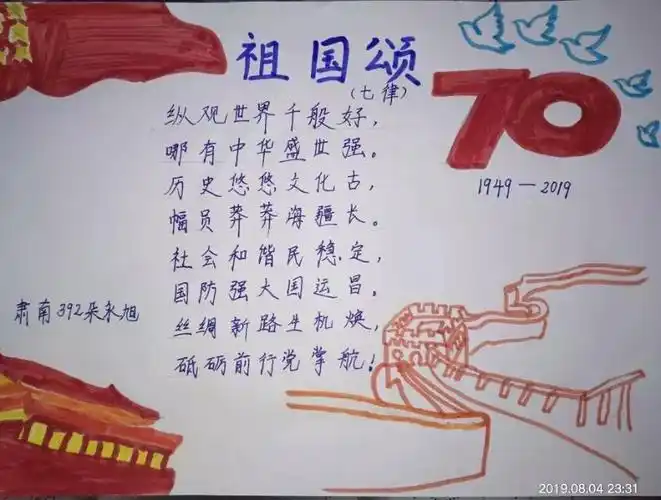 祖国颂
(七律)
纵观世界千般好,
哪有中华盛世强。
历史悠悠文化古,
幅员莽莽海疆长。
社会和谐民稳定,
国防强大国运昌。
丝绸新路生机焕,
砥砺前行党掌航!
70
1949—2019
肃南392朵永旭
2019.08.04 23:31